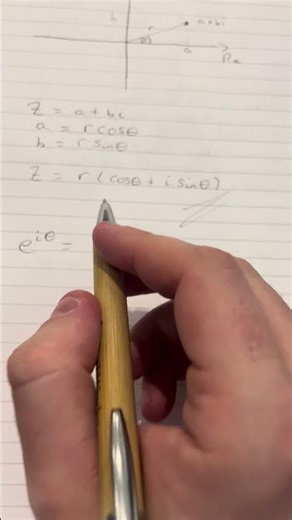 b
r
a+bi
θ
a
Re
z = a + bi
a = r cosθ
b = r sinθ
z = r (cosθ + i sinθ)
e^iθ =